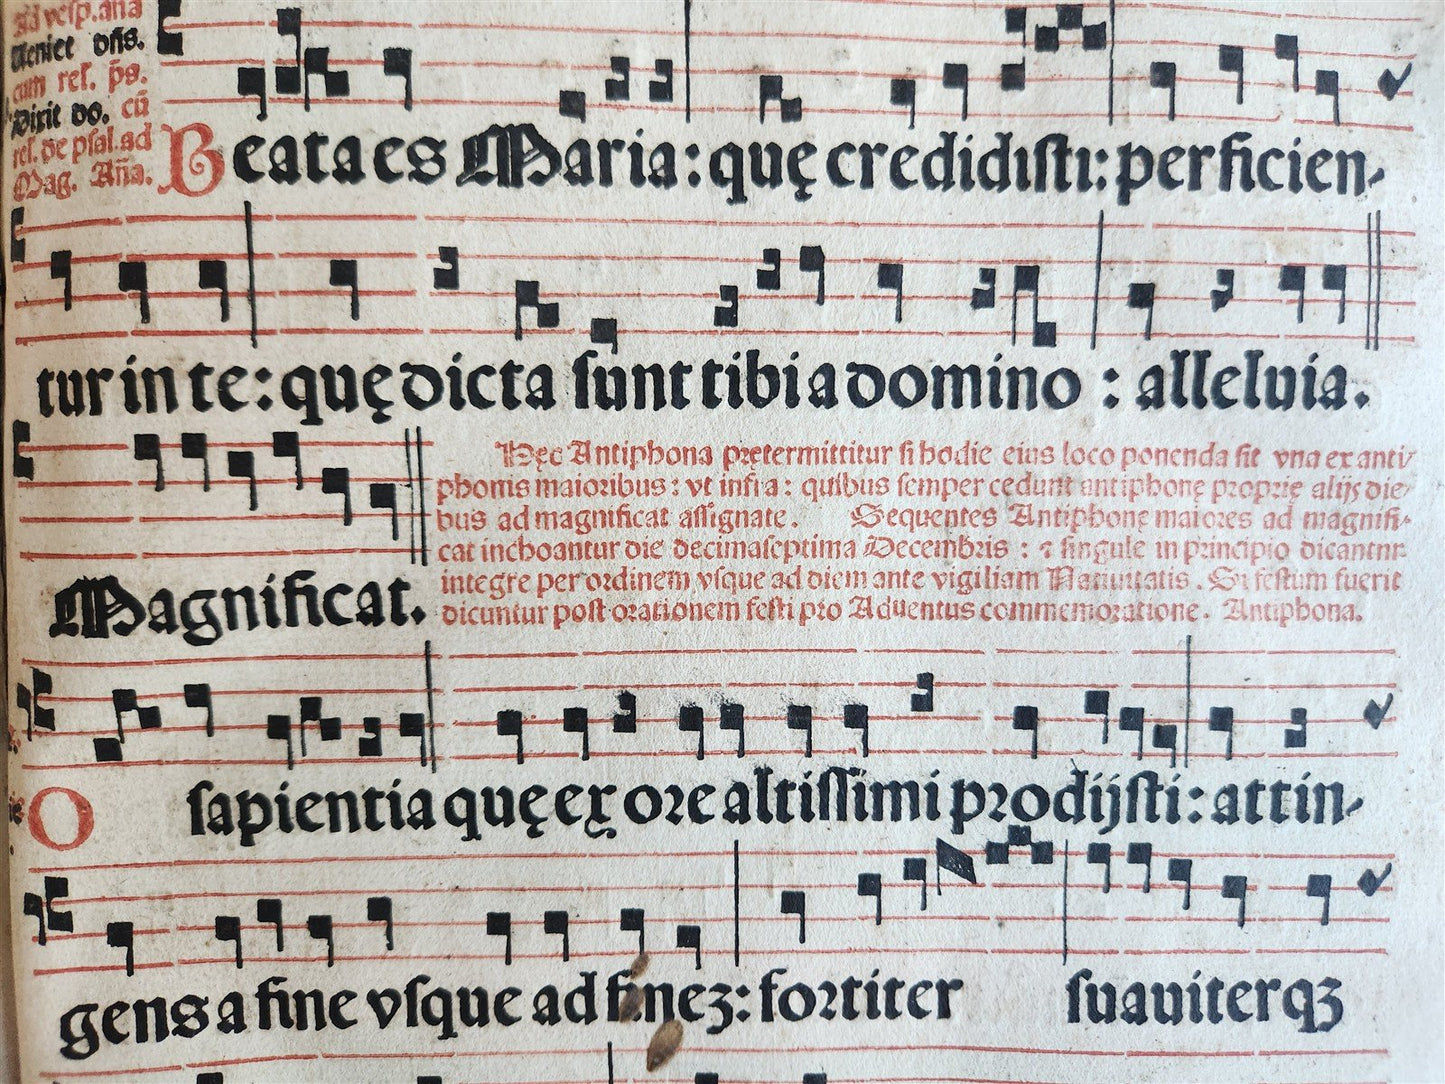 ad vesp. aña
Veniet dñs.
cum rel. ps̃.
Dixit do. cũ
rel. de psal. ad
Mag. Aña.
Beata es Maria: quę credidisti: perficien-
tur in te: quę dicta sunt tibi a domino : alleluia.
Hęc Antiphona prętermittitur si hodie eius loco ponenda sit vna ex anti-
phonis maioribus: vt infra: quibus semper cedunt antiphonę proprię alijs die-
bus ad magnificat assignate. Sequentes Antiphonę maiores ad magnifi-
cat inchoantur die decimaseptima Decembris : ⁊ singule in principio dicantur
integre per ordinem vsque ad diem ante vigiliam Natiuitatis. Si festum fuerit
dicuntur post orationem festi pro Aduentus commemoratione. Antiphona.
Magnificat.
O sapientia quę ex ore altissimi prodijsti: attin-
gens a fine vsque ad finez: fortiter suauiterqꝫ